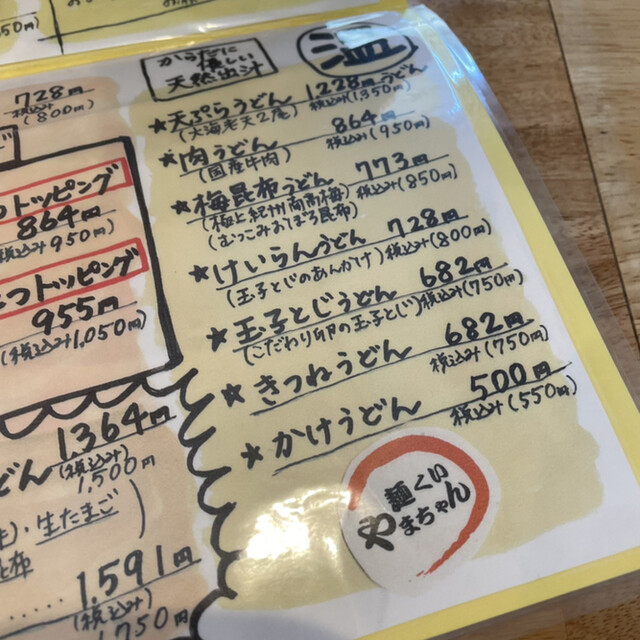 からだに
優しい
天然出汁
温
★天ぷらうどん 1228円
(大海老天2尾) 税込み(1350円)
★肉うどん 864円
(国産牛肉) 税込み(950円)
★梅昆布うどん 773円
(極上紀州南高梅) 税込み(850円)
(むっこみおぼろ昆布)
★けいらんうどん 728円
(玉子とじのあんかけ) 税込み(800円)
★玉子とじうどん 682円
(こだわり卵の玉子とじ) 税込み(750円)
★きつねうどん 682円
税込み(750円)
★かけうどん 500円
税込み(550円)
麺くい
やまちゃん
728円
税込み(800円)
つトッピング
864円
税込み950円)
つトッピング
955円
(税込み1,050円)
どん 1,364円
(税込み)
1,500円
・生たまご
昆布
1,591円
(税込み)
1,750円